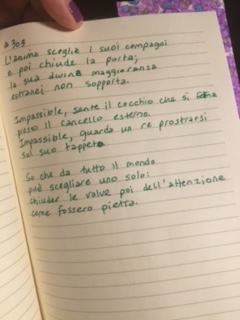 # 303
L'anima sceglie i suoi compagni
e poi chiude la porta;
la sua divina maggioranza
estranei non sopporta.
Impassibile, sente il cocchio che si ferma
presso il cancello esterno.
Impassibile, guarda un re prostrarsi
sul suo tappeto
So che da tutto il mondo
può scegliere uno solo:
chiuder le valve poi dell'attenzione
come fossero pietra.